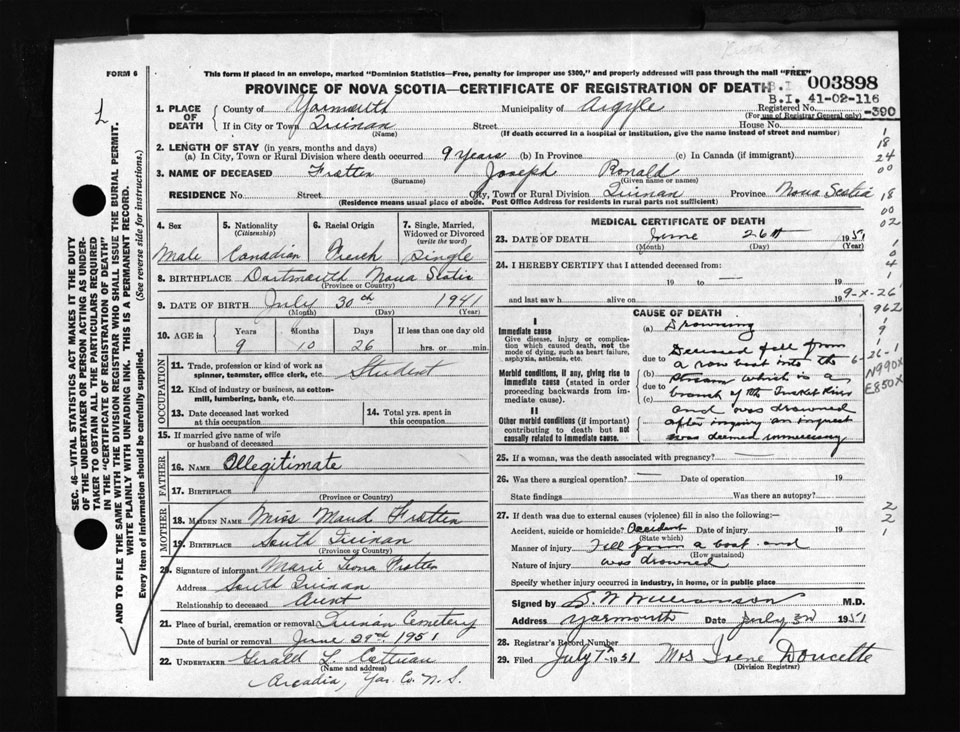 FORM 6
This form if placed in an envelope, marked "Dominion Statistics—Free, penalty for improper use $300," and properly addressed will pass through the mail "FREE"
PROVINCE OF NOVA SCOTIA—CERTIFICATE OF REGISTRATION OF DEATH
B.I. 003898
B.I. 41-02-116
Registered No. -390
(For use of Registrar General only)
1. PLACE OF DEATH County of Yarmouth Municipality of Argyle
If in City or Town Quinan Street House No.
(Name) (If death occurred in a hospital or institution, give the name instead of street and number)
2. LENGTH OF STAY (in years, months and days)
(a) In City, Town or Rural Division where death occurred 9 years (b) In Province (c) In Canada (if immigrant)
3. NAME OF DECEASED Frotten Joseph Ronald
(Surname) (Given name or names)
RESIDENCE No. Street City, Town or Rural Division Quinan Province Nova Scotia
(Residence means usual place of abode. Post Office Address for residents in rural parts not sufficient)
4. Sex 5. Nationality (Citizenship) 6. Racial Origin 7. Single, Married, Widowed or Divorced (write the word)
Male Canadian French Single
8. BIRTHPLACE Dartmouth Nova Scotia
(Province or Country)
9. DATE OF BIRTH July 30th 1941
(Month) (Day) (Year)
10. AGE in Years Months Days If less than one day old
9 10 26 hrs. or min.
OCCUPATION
11. Trade, profession or kind of work as spinner, teamster, office clerk, etc. Student
12. Kind of industry or business, as cotton-mill, lumbering, bank, etc.
13. Date deceased last worked at this occupation
14. Total yrs. spent in this occupation
15. If married give name of wife or husband of deceased
FATHER
16. NAME Illegitimate
17. BIRTHPLACE
(Province or Country)
MOTHER
18. MAIDEN NAME Miss Maud Frotten
19. BIRTHPLACE South Quinan
(Province or Country)
20. Signature of informant Marie Leona Frotten
Address South Quinan
Relationship to deceased Aunt
21. Place of burial, cremation or removal Quinan Cemetery
Date of burial or removal June 29th 1951
22. UNDERTAKER Gerald L.
(Name and address)
Arcadia, Yar. Co. N.S.
MEDICAL CERTIFICATE OF DEATH
23. DATE OF DEATH June 26th 1951
(Month) (Day) (Year)
24. I HEREBY CERTIFY that I attended deceased from:
19 to 19
and last saw h alive on 19
CAUSE OF DEATH
I
Immediate cause
Give disease, injury or complication which caused death, not the mode of dying, such as heart failure, asphyxia, asthenia, etc.
(a) Drowning
due to Deceased fell from a row boat into the
Morbid conditions, if any, giving rise to immediate cause (stated in order proceeding backwards from immediate cause).
(b) which is a
due to branch of the Tusket River
(c) and was drowned
II
Other morbid conditions (if important) contributing to death but not causally related to immediate cause.
after inquiry an inquest
was deemed unnecessary
25. If a woman, was the death associated with pregnancy?
26. Was there a surgical operation? Date of operation 19
State findings Was there an autopsy?
27. If death was due to external causes (violence) fill in also the following:—
Accident, suicide or homicide? Accident Date of injury 19
(State which)
Manner of injury Fell from a boat and
(How sustained)
Nature of injury was drowned
Specify whether injury occurred in industry, in home, or in public place
Signed by S. W. Williamson M.D.
Address Yarmouth Date July 3rd 1951
28. Registrar's Record Number
29. Filed July 7th 1951 Mrs Irene Doucette
(Division Registrar)
1
18
24
00
18
00
02
1
0
4
1
9-X-26
962
9
1
6-26-1
N990X
E850X
2
2
1
SEC. 46—VITAL STATISTICS ACT MAKES IT THE DUTY
OF THE UNDERTAKER OR PERSON ACTING AS UNDER-
TAKER TO OBTAIN ALL THE PARTICULARS REQUIRED
IN THE "CERTIFICATE OF REGISTRATION OF DEATH"
AND TO FILE THE SAME WITH THE DIVISION REGISTRAR WHO SHALL ISSUE THE BURIAL PERMIT.
WRITE PLAINLY WITH UNFADING INK. THIS IS A PERMANENT RECORD.
Every item of information should be carefully supplied. (See reverse side for instructions.)